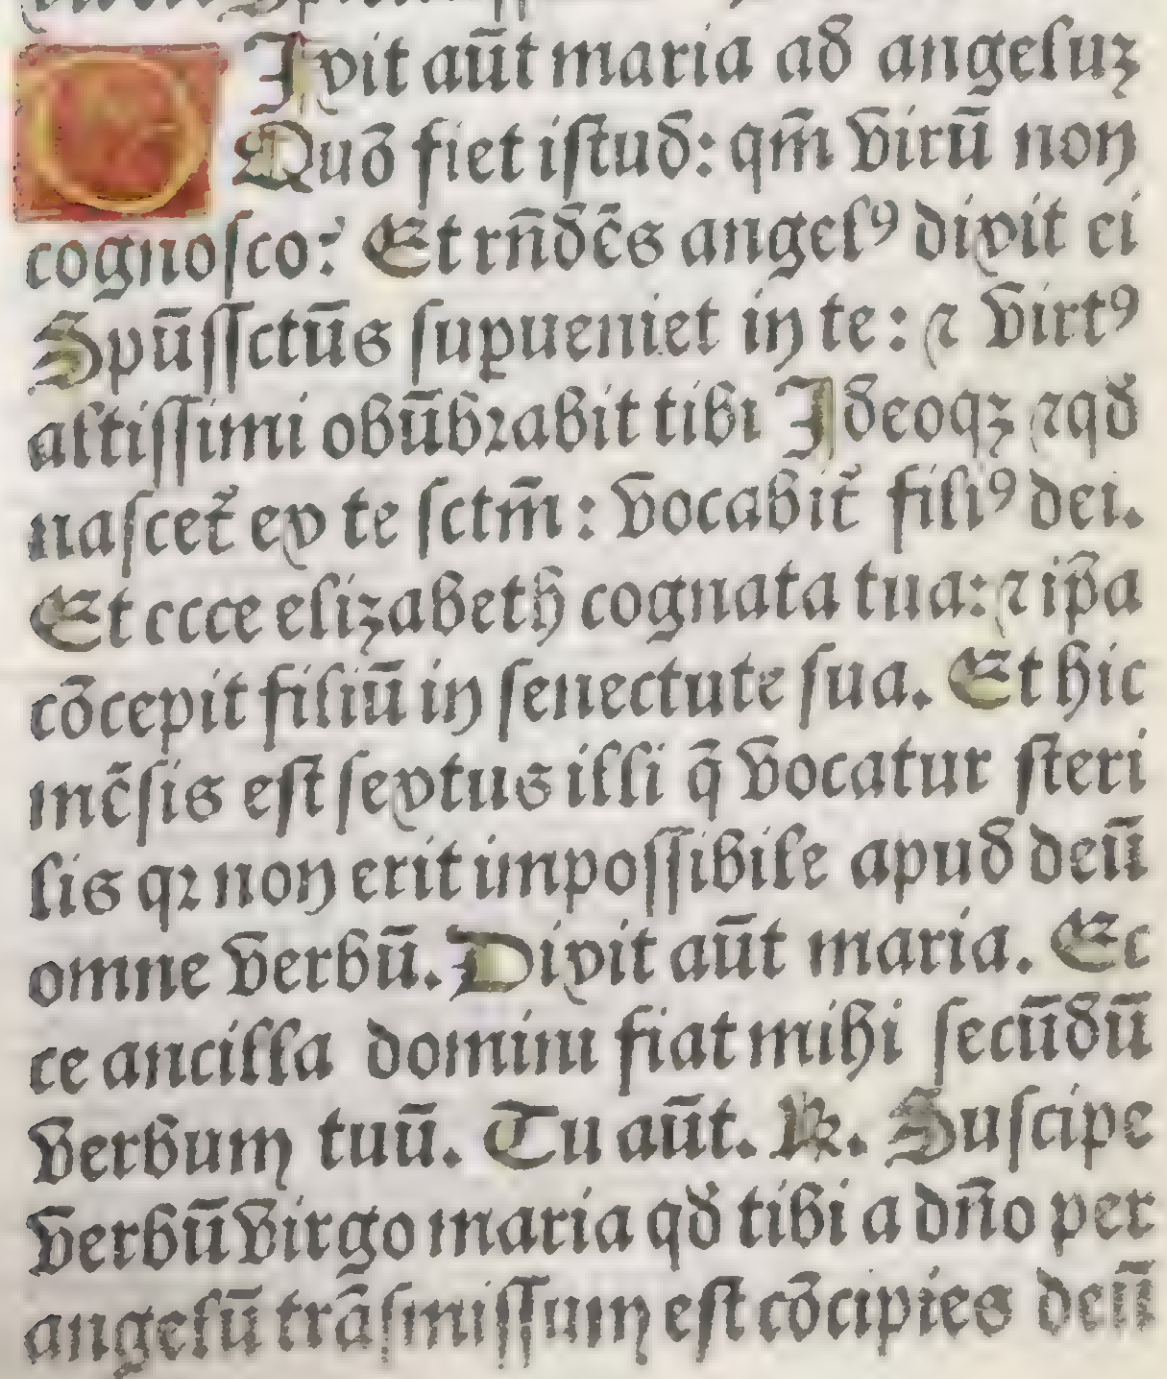 Ixit aūt maria ad angeluz
Quō fiet iſtud: qm̄ virū non
cognoſco? Et rn̄dēs angelꝰ dixit ei
Spūſſctūs ſupueniet in te: ⁊ virtꝰ
altiſſimi obūbꝛabit tibi Ideoqꝫ ⁊qd̄
naſcet̄ ex te ſctm̄: vocabit̄ filiꝰ dei.
Et ecce elizabeth cognata tua: ⁊ ip̄a
cōcepit filiū in ſenectute ſua. Et hic
mēſis eſt ſextus illi q̄ vocatur ſteri
lis qꝛ non erit impoſſibile apud deū
omne verbū. Dixit aūt maria. Ec
ce ancilla domini fiat mihi ſecūdū
verbum tuū. Tu aūt. ℟. Suſcipe
verbū virgo maria qd̄ tibi a dn̄o per
angelū trāſmiſſum eſt cōcipies deū